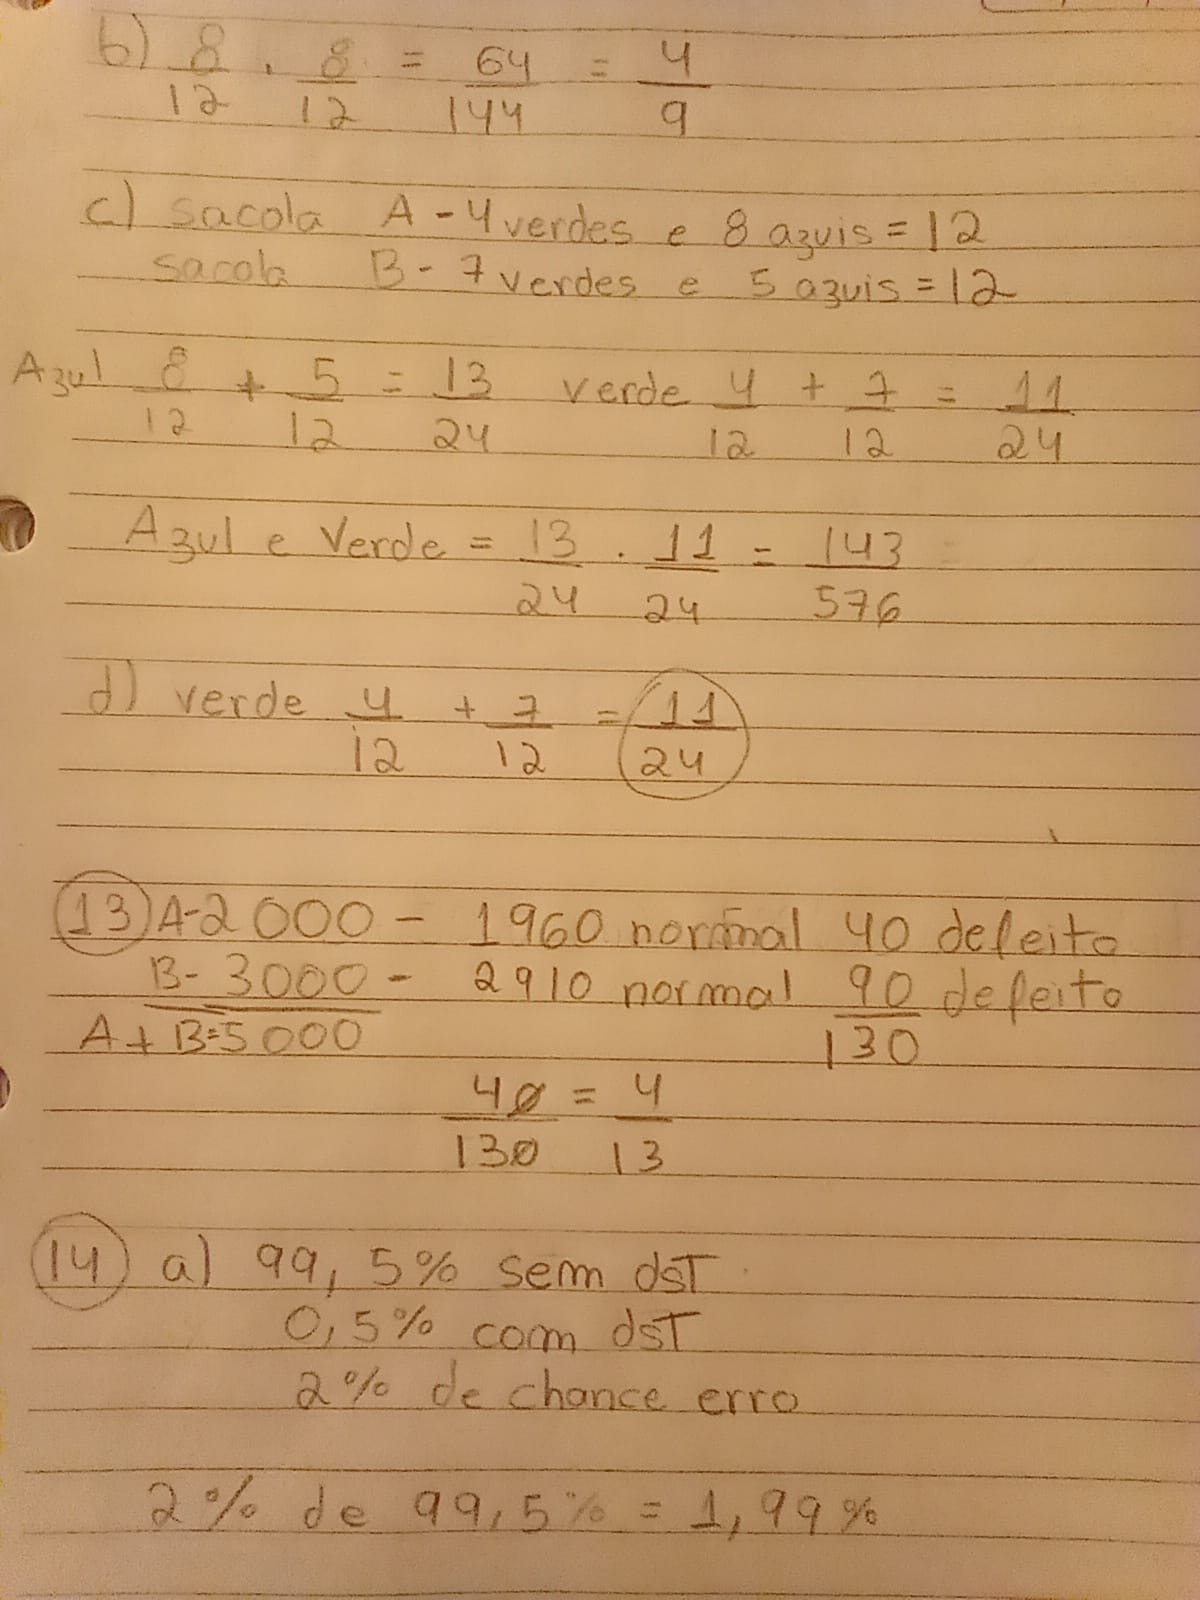 b) 8/12 . 8/12 = 64/144 = 4/9
c) sacola A - 4 verdes e 8 azuis = 12
sacola B - 7 verdes e 5 azuis = 12
Azul 8/12 + 5/12 = 13/24 verde 4/12 + 7/12 = 11/24
Azul e Verde = 13/24 . 11/24 = 143/576
d) verde 4/12 + 7/12 = 11/24
13) A-2000 - 1960 normal 40 defeito
B- 3000 - 2910 normal 90 defeito
A + B = 5000 130
40/130 = 4/13
14 a) 99,5% sem dsT
0,5% com dsT
2% de chance erro
2% de 99,5% = 1,99%